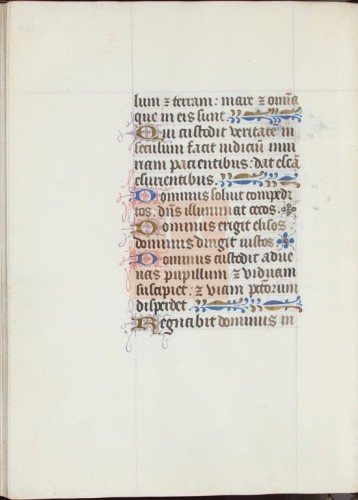 lum ⁊ terram: mare ⁊ om̄a
que in eis sunt.
Qui custodit veritatē in
seculum facit iudiciū iniu
riam pacientibus: dat escā
esurientibus.
Dominus soluit compedi
tos: dn̄s illuminat cecos.
Dominus erigit elisos
dominus dirigit iustos.
Dominus custodit adue
nas pupillum ⁊ viduam
suscipiet: ⁊ viam pctōrum
disperdet.
Regnabit dominus in